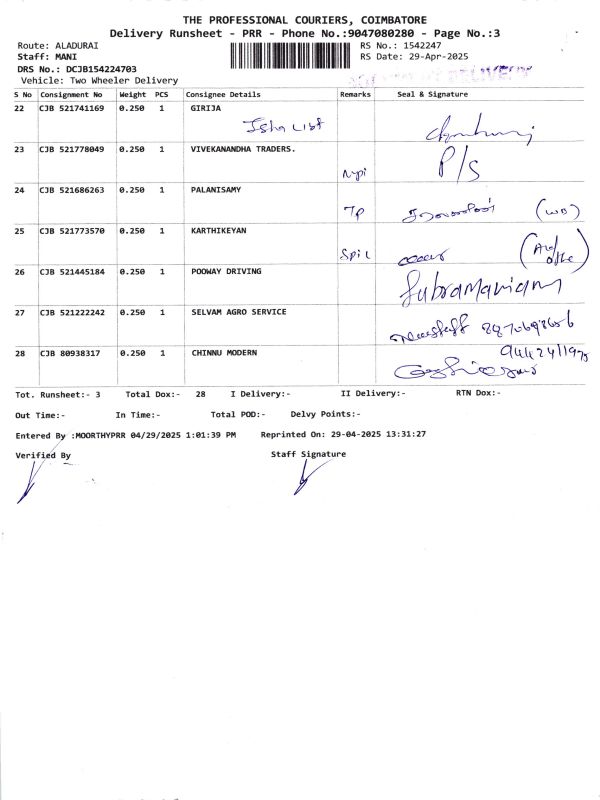 THE PROFESSIONAL COURIERS, COIMBATORE
Delivery Runsheet - PRR - Phone No.:9047080280 - Page No.:3
Route: ALADURAI
RS No.: 1542247
Staff: MANI
RS Date: 29-Apr-2025
DRS No.: DCJB154224703
Vehicle: Two Wheeler Delivery
S No Consignment No Weight PCS Consignee Details Remarks Seal & Signature
22 CJB 521741169 0.250 1 GIRIJA
23 CJB 521778049 0.250 1 VIVEKANANDHA TRADERS.
P/S
24 CJB 521686263 0.250 1 PALANISAMY
TP
25 CJB 521773570 0.250 1 KARTHIKEYAN
26 CJB 521445184 0.250 1 POOWAY DRIVING
Subramaniam
27 CJB 521222242 0.250 1 SELVAM AGRO SERVICE
28 CJB 80938317 0.250 1 CHINNU MODERN
Tot. Runsheet:- 3 Total Dox:- 28 I Delivery:- II Delivery:- RTN Dox:-
Out Time:- In Time:- Total POD:- Delvy Points:-
Entered By :MOORTHYPRR 04/29/2025 1:01:39 PM Reprinted On: 29-04-2025 13:31:27
Verified By Staff Signature